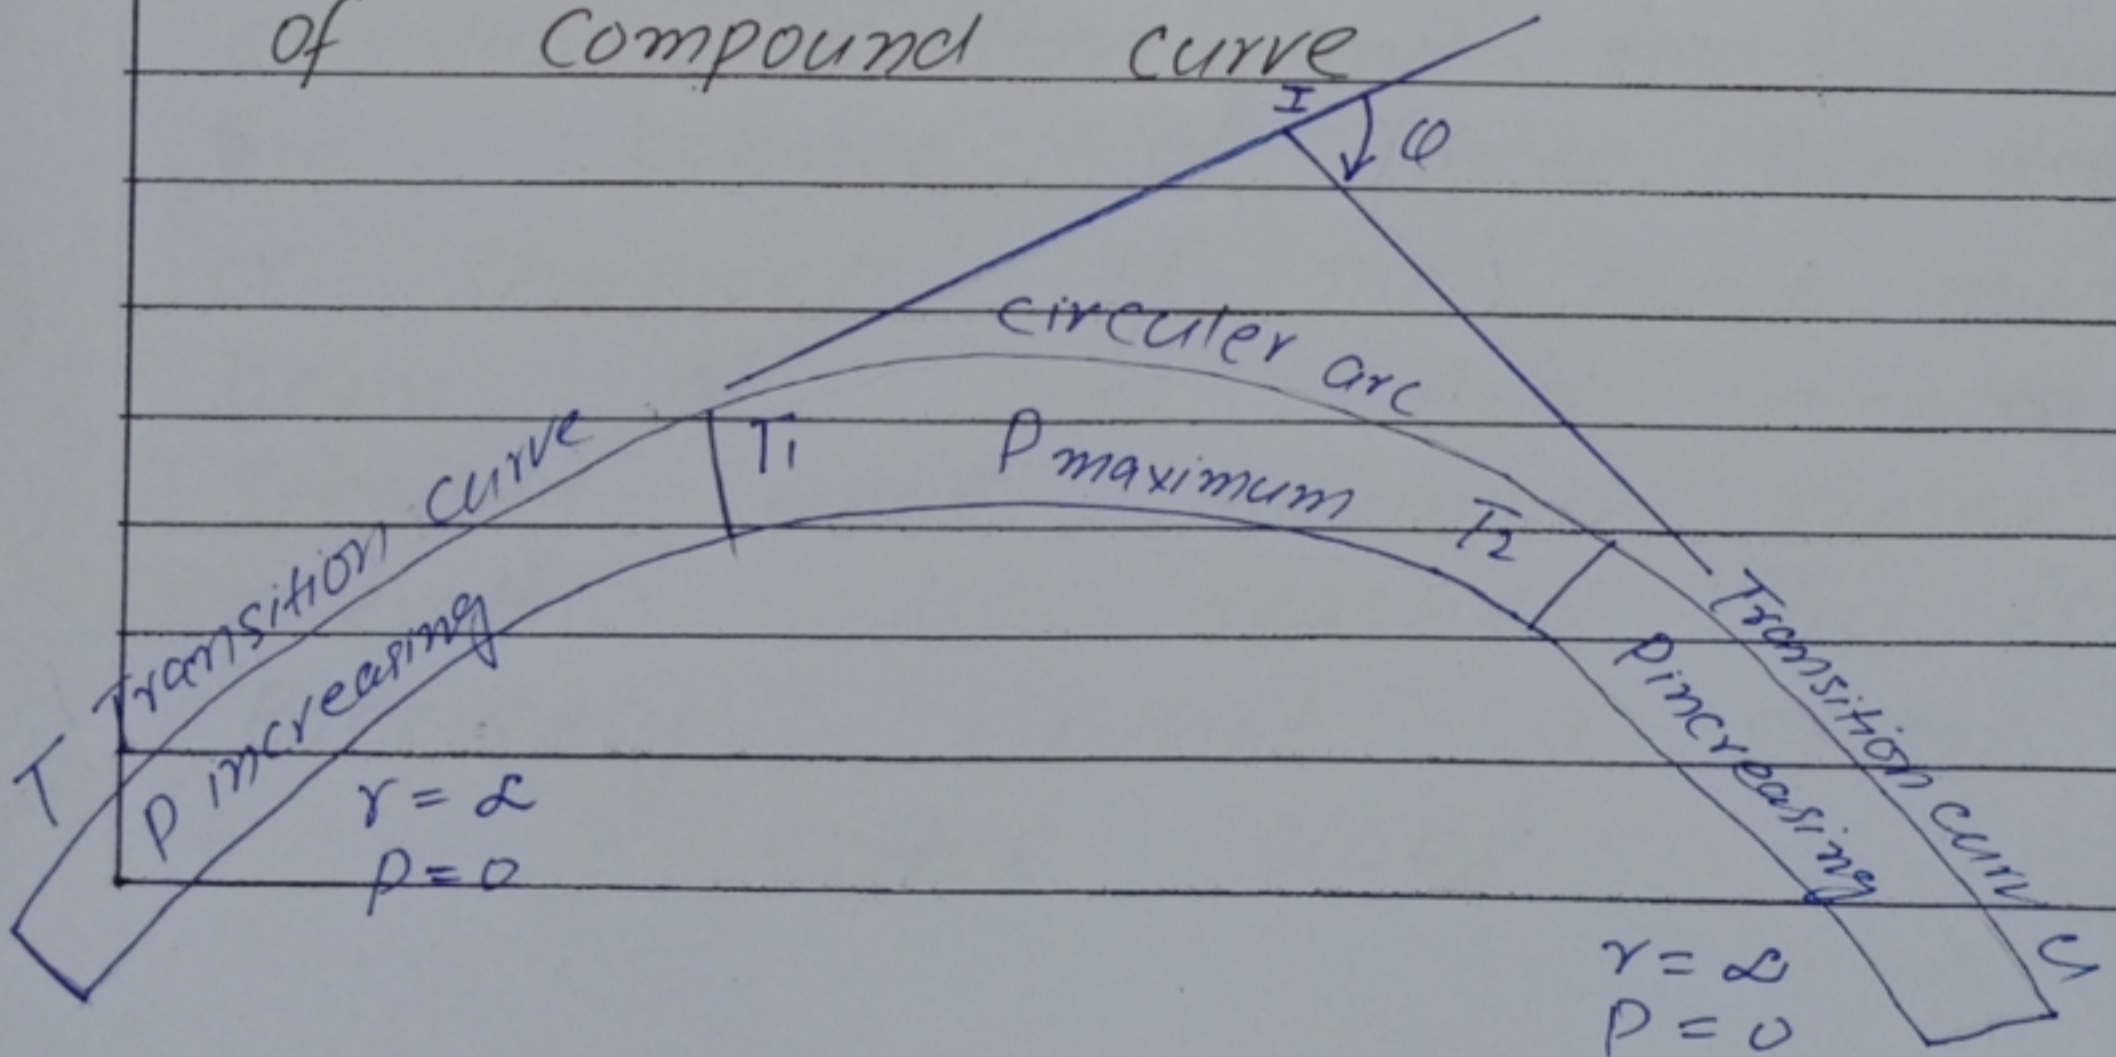 of Compound curve
I
φ
circuler arc
T1
P maximum
T2
Transition curve
P increasing
T
r = ∝
P = 0
Transition curv
P increasing
r = ∝
P = 0